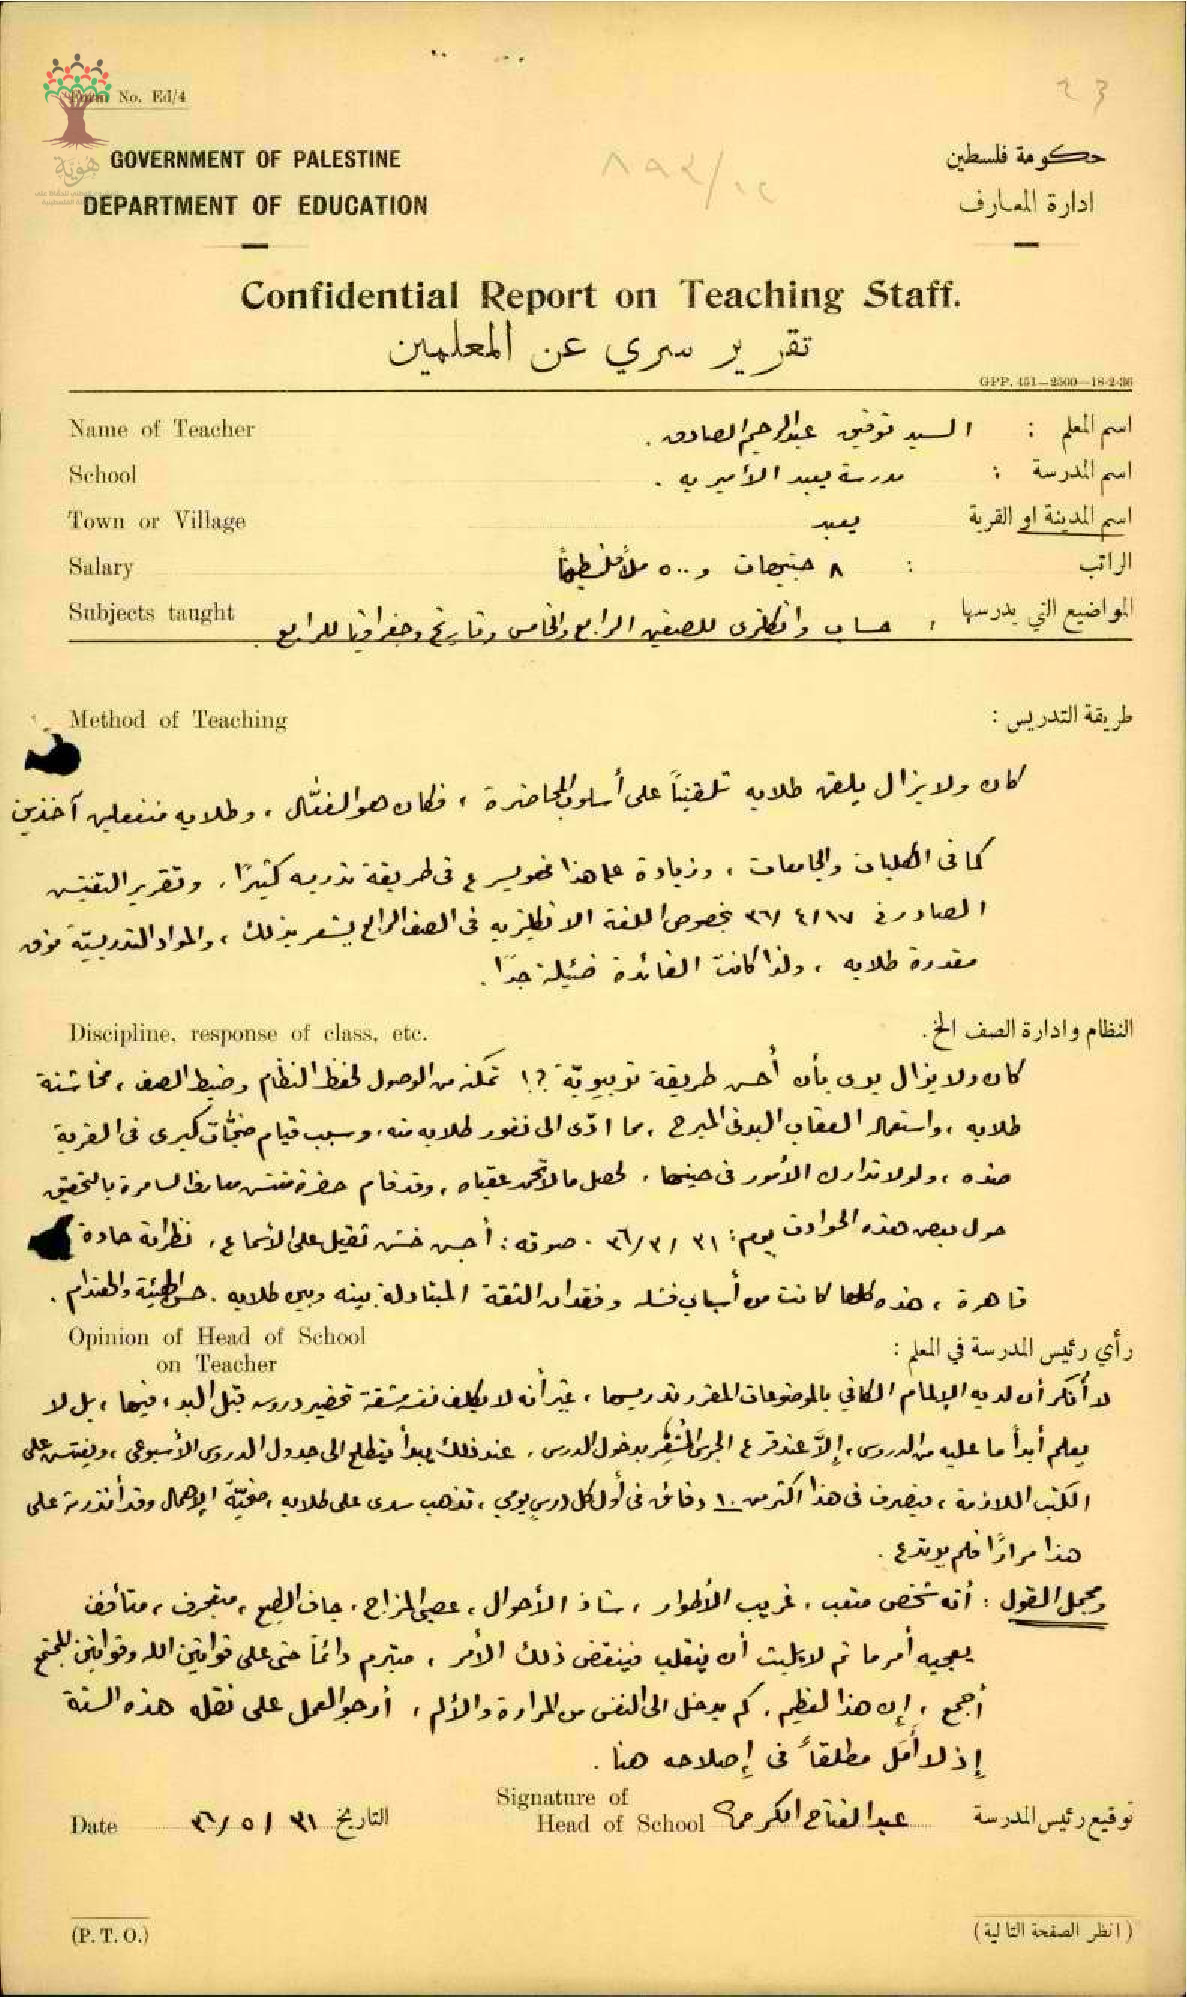 Form No. Ed/4
٢٣
هوية
GOVERNMENT OF PALESTINE
حكومة فلسطين
DEPARTMENT OF EDUCATION
ادارة المعارف
Confidential Report on Teaching Staff.
تقرير سري عن المعلمين
GPP. 451—2500—18-2-36
Name of Teacher السيد توفيق عبد الرحيم الصادق . اسم المعلم :
School مدرسة يعبد الأميرية . اسم المدرسة :
Town or Village يعبد اسم المدينة او القرية
Salary ٨ جنيهات و ٥٠٠ ملاً فلسطينياً الراتب :
Subjects taught حساب وانكليزي للصفين الرابع والخامس وتاريخ وجغرافيا للرابع . المواضيع التي يدرسها :
Method of Teaching طريقة التدريس :
كان ولا يزال يلقن طلابه تلقيناً على أسلوب المحاضرة ، فكان هو الفعّال ، وطلابه منفعلين آخذين
كما في الكليات والجامعات ، وزيادة على هذا فهو يسرع في طريقة تدريسه كثيرًا . وتقرير التفتيش
الصادر في ١٧ / ٤ / ٣٦ بخصوص اللغة الانكليزيه في الصف الرابع يشعر بذلك ، والمواد التدريسيّة فوق
مقدرة طلابه ، ولذا كانت الفائدة ضئيلة جدًا .
Discipline, response of class, etc. النظام وادارة الصف الخ .
كان ولا يزال يرى بأن أحسن طريقة تربويّة ?! تمكنه من الوصول لحفظ النظام وضبط الصف ، مخاشنة
طلابه ، واستعمال العقاب البدني المبرح ، مما ادّى الى نفور طلابه منه ، وسبب قيام ضجّات كبرى في القرية
هذه ، ولولا تدارك الأمور في حينها ، لحصل ما لا تحمد عقباه ، وقد قام حضرة مفتش معارف السامرة بالتحقيق
حول بعض هذه الحوادث يوم : ٣١ / ٣ / ٣٦ . صوته : أجش خشن ثقيل على الأسماع ، نظراته حادة
قاهرة ، هذه كلها كانت من أسباب فشله وفقدان الثقة المتبادلة بينه وبين طلابه . حسن الهيئة والهندام .
Opinion of Head of School
on Teacher رأي رئيس المدرسة في المعلم :
لا أنكر أن لديه الإلمام الكافي بالموضوعات المقرر تدريسها ، غير أنه لا يكلف نفسه مشقة تحضير دروسه قبل البدء فيها ، بل لا
يعلم أبداً ما عليه من الدروس ، إلاّ عند قرع الجرس المُشْعِر بدخول الدرس . عند ذلك يبدأ يتطلع الى جدول الدروس الأسبوعي ، ويفتش على
الكتب اللازمة ، فيصرف في هذا اكثر من ١٠ دقائق في أول كل درس يومي ، تذهب سدى على طلابه ، ضحيّة الإهمال وقد أنذرته على
هذا مرارًا فلم يرتدع .
ومجمل القول : أنه شخص متعب ، غريب الأطوار ، شاذ الأحوال ، عصبي المزاج ، جاف الطبع ، متعجرف ، متأفف
يعجبه أمر ما ثم لا يلبث أن ينقلب فينقض ذلك الأمر ، متبرم دائماً حتى على قوانين الله وقوانين المجتمع
أجمع ، إن هذا لعظيم ، كم يدخل الى النفس من المرارة والألم ، أرجو العمل على نقله هذه السنة
إذ لا أمل مطلقاً في إصلاحه هنا .
Signature of
Head of School عبد الفتاح الكرمي توقيع رئيس المدرسة
Date ٣١ / ٥ / ٣٦ التاريخ
(P. T. O.) (انظر الصفحة التالية)